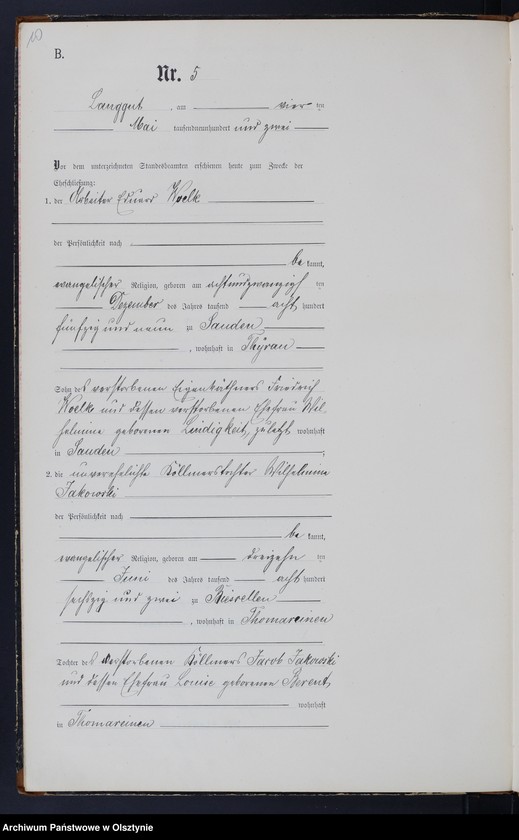 10
B.
Nr. 5
Langgut, am vier ten
Mai tausendneunhundert und zwei
Vor dem unterzeichneten Standesbeamten erschienen heute zum Zwecke der
Eheschließung:
1. der Arbeiter Eduard Koelk
der Persönlichkeit nach
be kannt,
evangelischer Religion, geboren am achtundzwanzigsten
Dezember des Jahres tausend acht hundert
fünfzig und neun zu Sauden
, wohnhaft in Thyrau
Sohn des verstorbenen Eigenkäthners Friedrich
Koelk und dessen verstorbenen Ehefrau Wil-
helmine geborenen Lindigkeit, zuletzt wohnhaft
in Sauden ;
2. die unverehelichte Köllmerstochter Wilhelmine
Jakowski
der Persönlichkeit nach
be kannt,
evangelischer Religion, geboren am dreizehn ten
Juni des Jahres tausend acht hundert
sechzig und zwei zu Biessellen
, wohnhaft in Thomareinen
Tochter des verstorbenen Köllmers Jacob Jakowski
und dessen Ehefrau Louise geborenen Berent,
wohnhaft
in Thomareinen
Archiwum Państwowe w Olsztynie